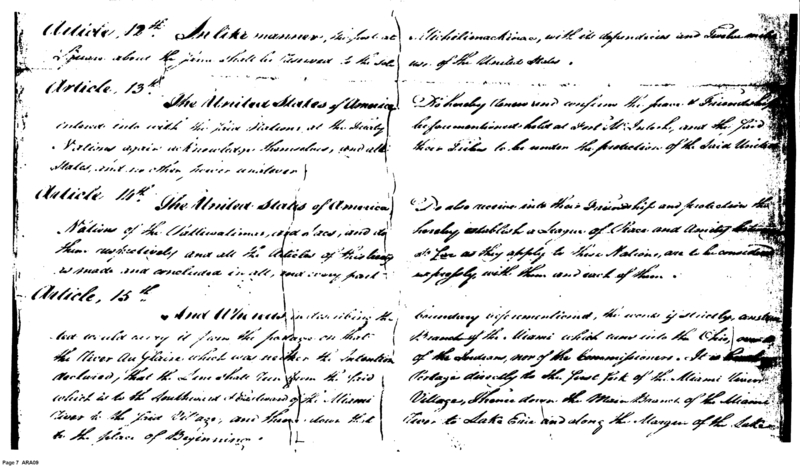 Article, 12th. In like manner, the post at Michilimackinac, with its dependencies and Twelve miles
square about the same shall be reserved to the sole use of the United States.
Article, 13th
The United States of America Do hereby renew and confirm the peace & Friendship
entered into with the said Nations, at the Treaty beforementioned held at Fort McIntosh, and the said
Nations again acknowledge themselves, and all their Tribes to be under the protection of the Said United
States, and no other Power whatever
Article 14th
The United States of America Do also receive into their Friendship and protection the
Nations of the Pattiwatimas, and Sacs, and do hereby establish a League of Peace and Amity between
them respectively and all the Articles of this treaty so far as they apply to these Nations, are to be considered
as made and concluded in all, and every part expressly with them and each of them.
Article, 15th
And Whereas in describing the boundary beforementioned, the words if strictly constru
ed would carry it from the portage on that Branch of the Miami which runs into the Ohio, over to
the River Au Glaize which was neither the Intention of the Indians, nor of the Commissioners. It is hereby
declared, that the Line shall run from the said Portage directly to the first fork of the Miami River
which is to the Southward & Eastward of the Miami Village, thence down the Main Branch of the Miami
River to the said Village, and thence down that River to Lake Erie and along the Margin of the Lake
to the place of Beginning.
Page 7 ARA08